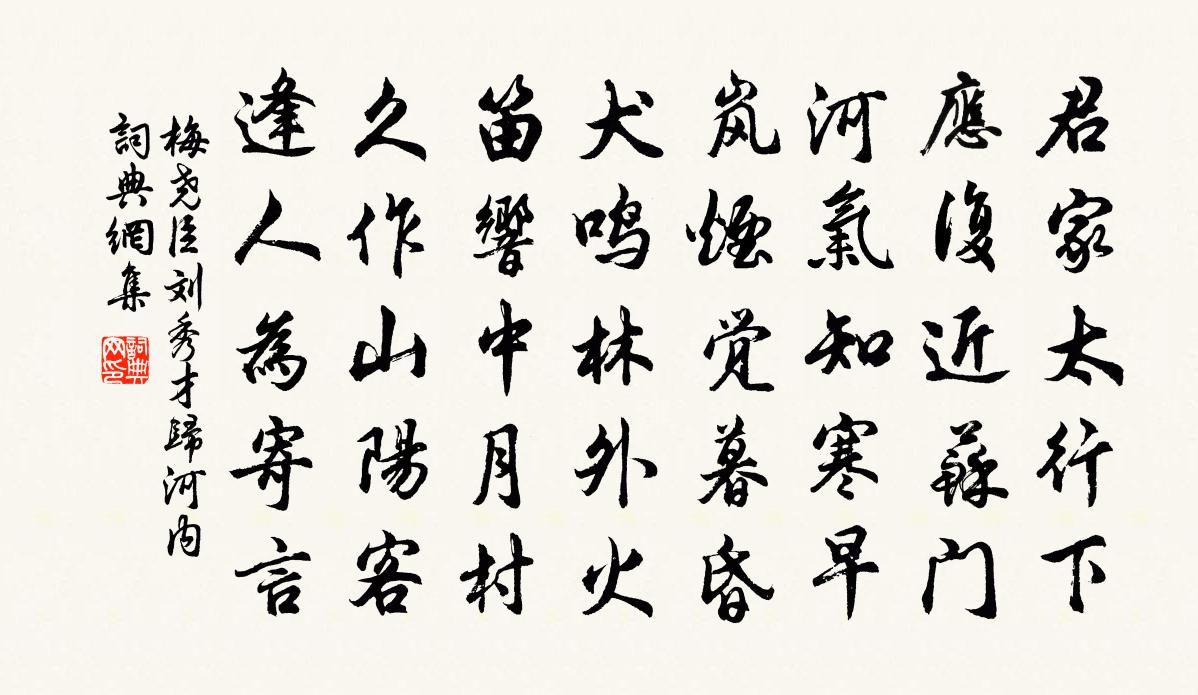 君家太行下
應復近蘇门
河氣知寒早
岚煙觉暮昏
犬鸣林外火
笛響中月村
久作山陽客
逢人為寄言
梅尧臣刘秀才歸河内
詞典網集
詞典網印